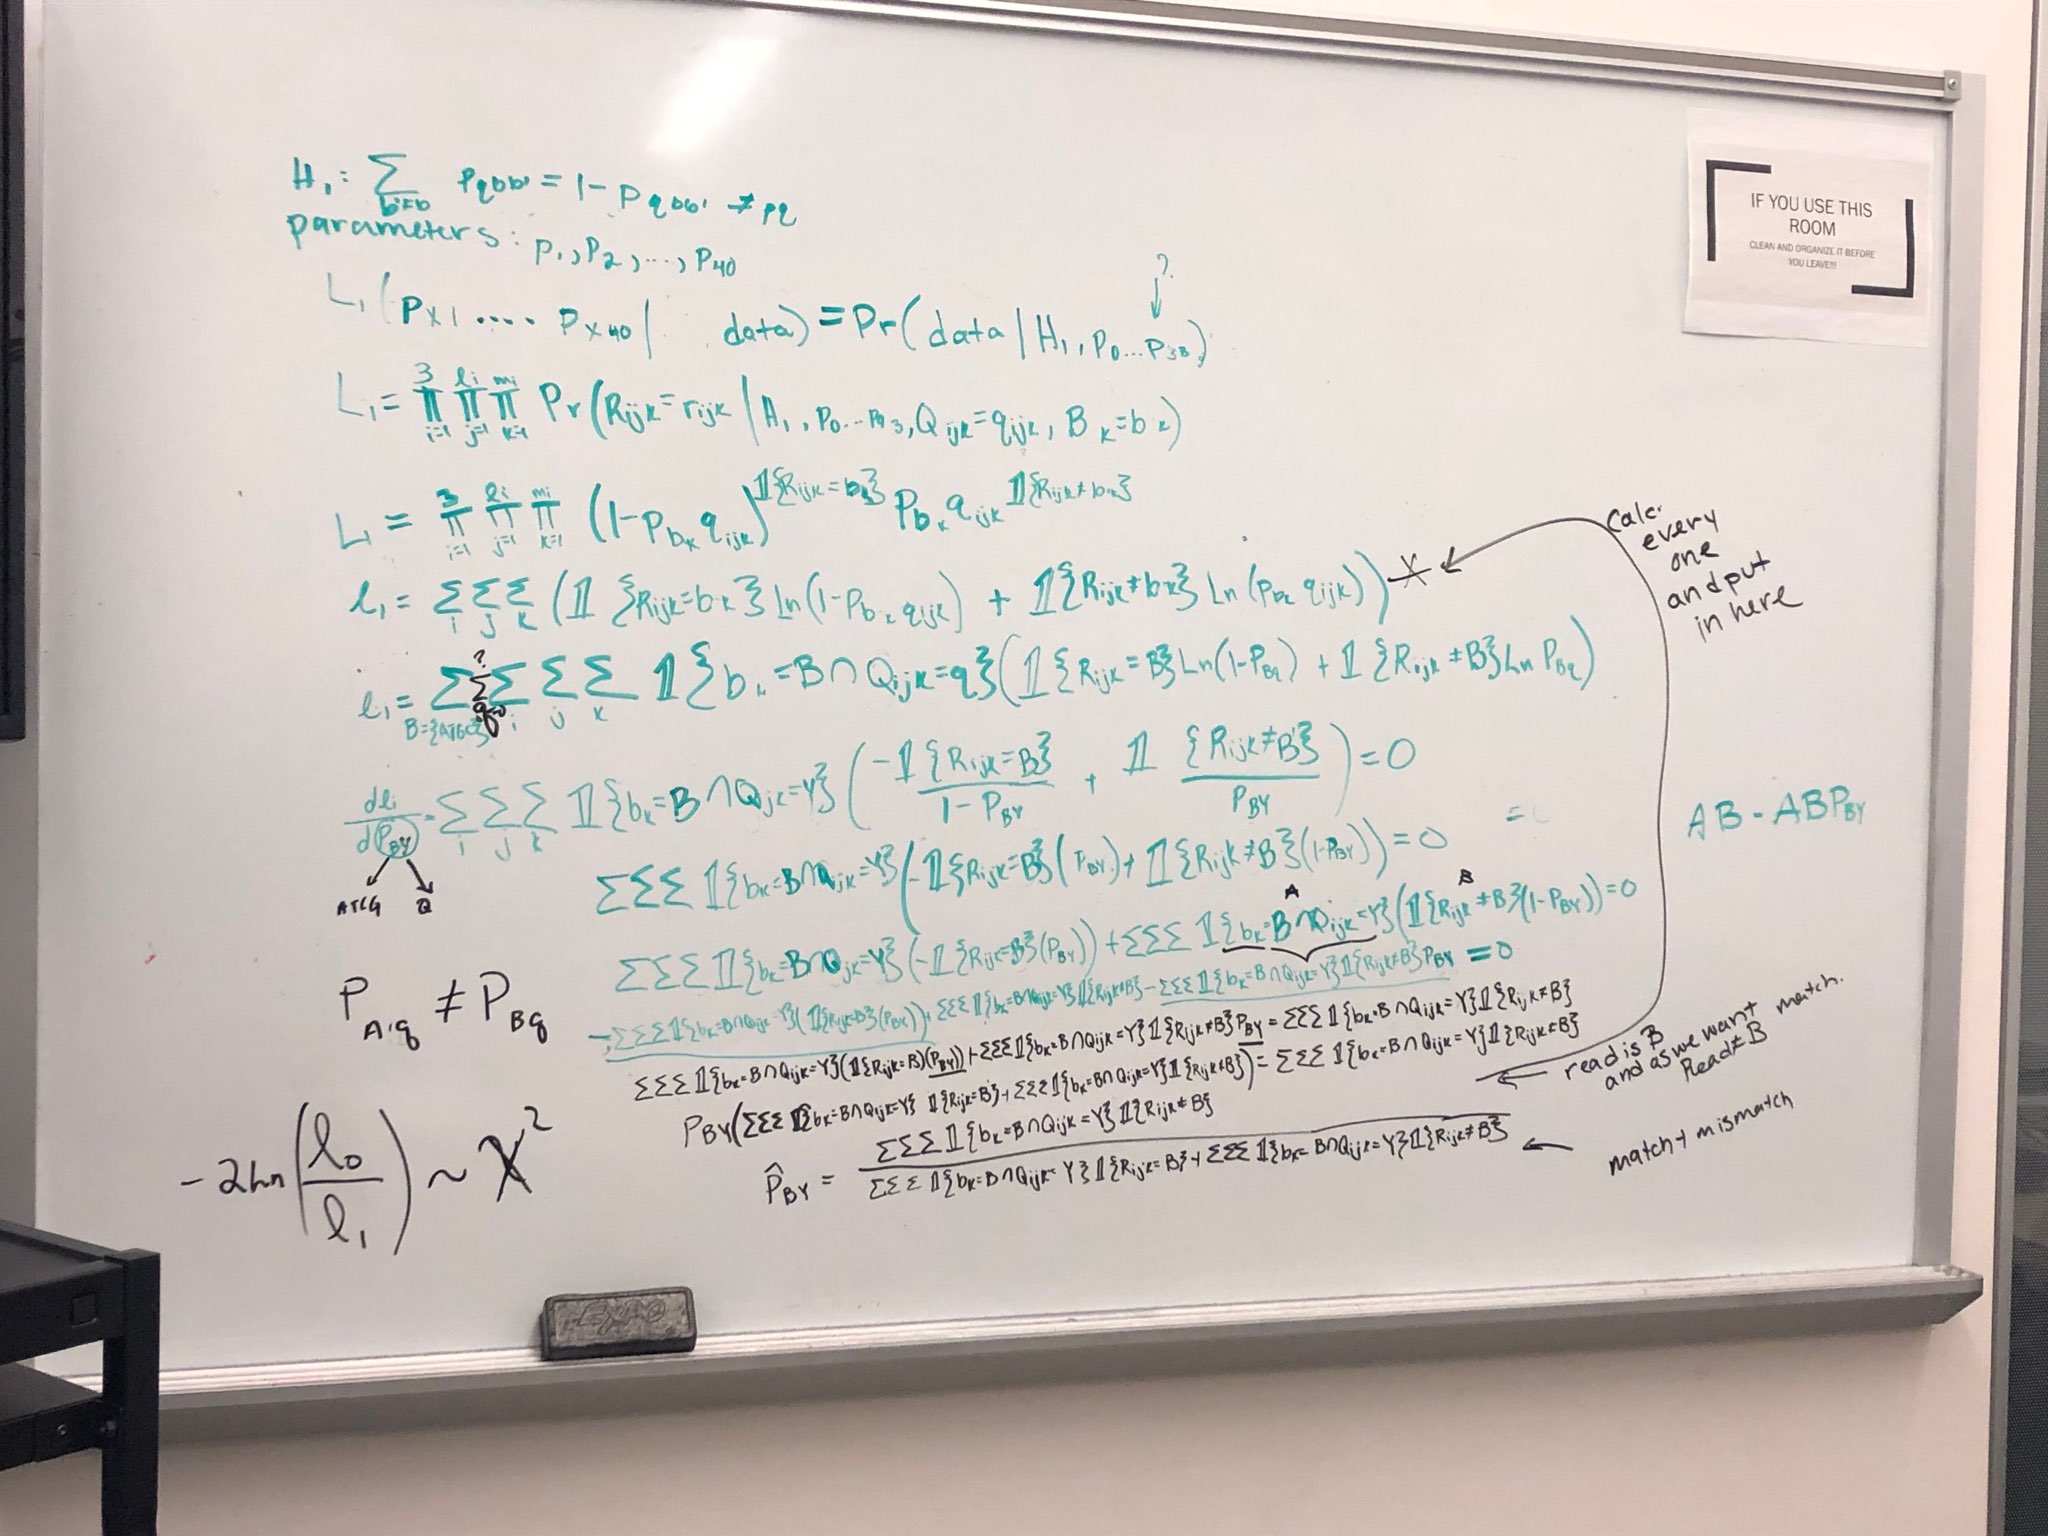 H₁: Σ_{b'≠b} p_{qbb'} = 1 - p_{qbb'} ≠ p_q
parameters: p₁, p₂, ..., p₄₀
L₁(p_{x1} .... p_{x40} | data) = Pr(data | H₁, p₀...p₃₉)
?
L₁ = ∏_{i=1}^{3} ∏_{j=1}^{l_i} ∏_{k=1}^{m_i} Pr(R_{ijk} = r_{ijk} | H₁, p₀...p₉₃, Q_{ijk} = q_{ijk}, B_k = b_k)
L₁ = ∏_{i=1}^{3} ∏_{j=1}^{l_i} ∏_{k=1}^{m_i} (1-p_{b_k} q_{ijk})^{𝟙{R_{ijk} = b_k}} p_{b_k} q_{ijk}^{𝟙{R_{ijk} ≠ b_k}}
l₁ = Σ_i Σ_j Σ_k (𝟙{R_{ijk} = b_k} Ln(1-p_{b_k} q_{ijk}) + 𝟙{R_{ijk} ≠ b_k} Ln(p_{b_k} q_{ijk}))
calc.
every
one
and put
in here
l₁ = Σ_{B={ATGC}} Σ_{q=0}^{?} Σ_i Σ_j Σ_k 𝟙{b_k = B ∩ Q_{ijk} = q}(𝟙{R_{ijk} = B} Ln(1-P_{Bq}) + 𝟙{R_{ijk} ≠ B} Ln P_{Bq})
dl₁/d(P_{BY}) = Σ_i Σ_j Σ_k 𝟙{b_k = B ∩ Q_{ijk} = Y}(-𝟙{R_{ijk} = B}/(1-P_{BY}) + 𝟙{R_{ijk} ≠ B}/P_{BY}) = 0
ATCG Q
AB - ABP_{BY}
ΣΣΣ 𝟙{b_k = B ∩ Q_{ijk} = Y}(-𝟙{R_{ijk} = B}(P_{BY}) + 𝟙{R_{ijk} ≠ B}(1-P_{BY})) = 0
=
A B
ΣΣΣ 𝟙{b_k = B ∩ Q_{ijk} = Y}(-𝟙{R_{ijk} = B}(P_{BY})) + ΣΣΣ 𝟙{b_k = B ∩ Q_{ijk} = Y}(𝟙{R_{ijk} ≠ B}(1-P_{BY})) = 0
-ΣΣΣ 𝟙{b_k = B ∩ Q_{ijk} = Y}(𝟙{R_{ijk} = B}(P_{BY})) + ΣΣΣ 𝟙{b_k = B ∩ Q_{ijk} = Y}𝟙{R_{ijk} ≠ B} - ΣΣΣ 𝟙{b_k = B ∩ Q_{ijk} = Y}𝟙{R_{ijk} ≠ B}P_{BY} = 0
ΣΣΣ 𝟙{b_k = B ∩ Q_{ijk} = Y}(𝟙{R_{ijk} = B)(P_{BY})) + ΣΣΣ 𝟙{b_k = B ∩ Q_{ijk} = Y}𝟙{R_{ijk} ≠ B}P_{BY} = ΣΣΣ 𝟙{b_k = B ∩ Q_{ijk} = Y}𝟙{R_{ijk} ≠ B}
P_{BY}(ΣΣΣ 𝟙{b_k = B ∩ Q_{ijk} = Y} 𝟙{R_{ijk} = B} + ΣΣΣ 𝟙{b_k = B ∩ Q_{ijk} = Y}𝟙{R_{ijk} ≠ B}) = ΣΣΣ 𝟙{b_k = B ∩ Q_{ijk} = Y}𝟙{R_{ijk} ≠ B}
P̂_{BY} = ΣΣΣ 𝟙{b_k = B ∩ Q_{ijk} = Y}𝟙{R_{ijk} ≠ B} / ΣΣΣ 𝟙{b_k = B ∩ Q_{ijk} = Y}𝟙{R_{ijk} = B} + ΣΣΣ 𝟙{b_k = B ∩ Q_{ijk} = Y}𝟙{R_{ijk} ≠ B}
read is B
and as we want match.
Read ≠ B
match + mismatch
P_{A,q} ≠ P_{Bq}
-2Ln(l₀/l₁) ~ X²
IF YOU USE THIS
ROOM
CLEAN AND ORGANIZE IT BEFORE
YOU LEAVE!!!
EXPO